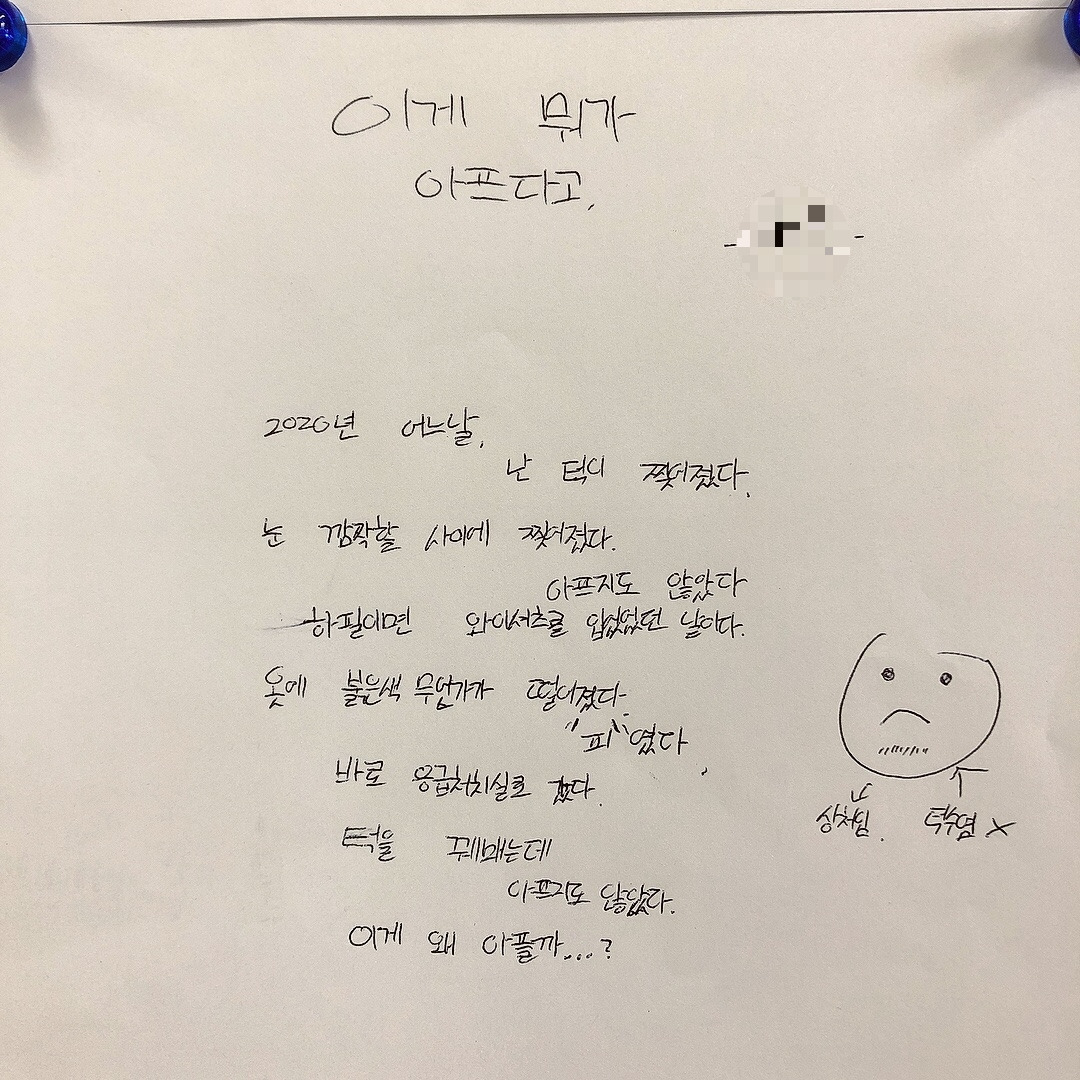 이게 뭐가
아프다고,
2020년 어느날,
난 턱이 찢어졌다,
눈 깜짝할 사이에 찢어졌다.
아프지도 않았다
하필이면 와이셔츠를 입었었던 날이다.
옷에 붉은색 무언가가 떨어졌다
"피"였다,
바로 응급처치실로 갔다.
턱을 꿰매는데
아프지도 않았다.
이게 왜 아플까...?
상처임.
턱수염 X